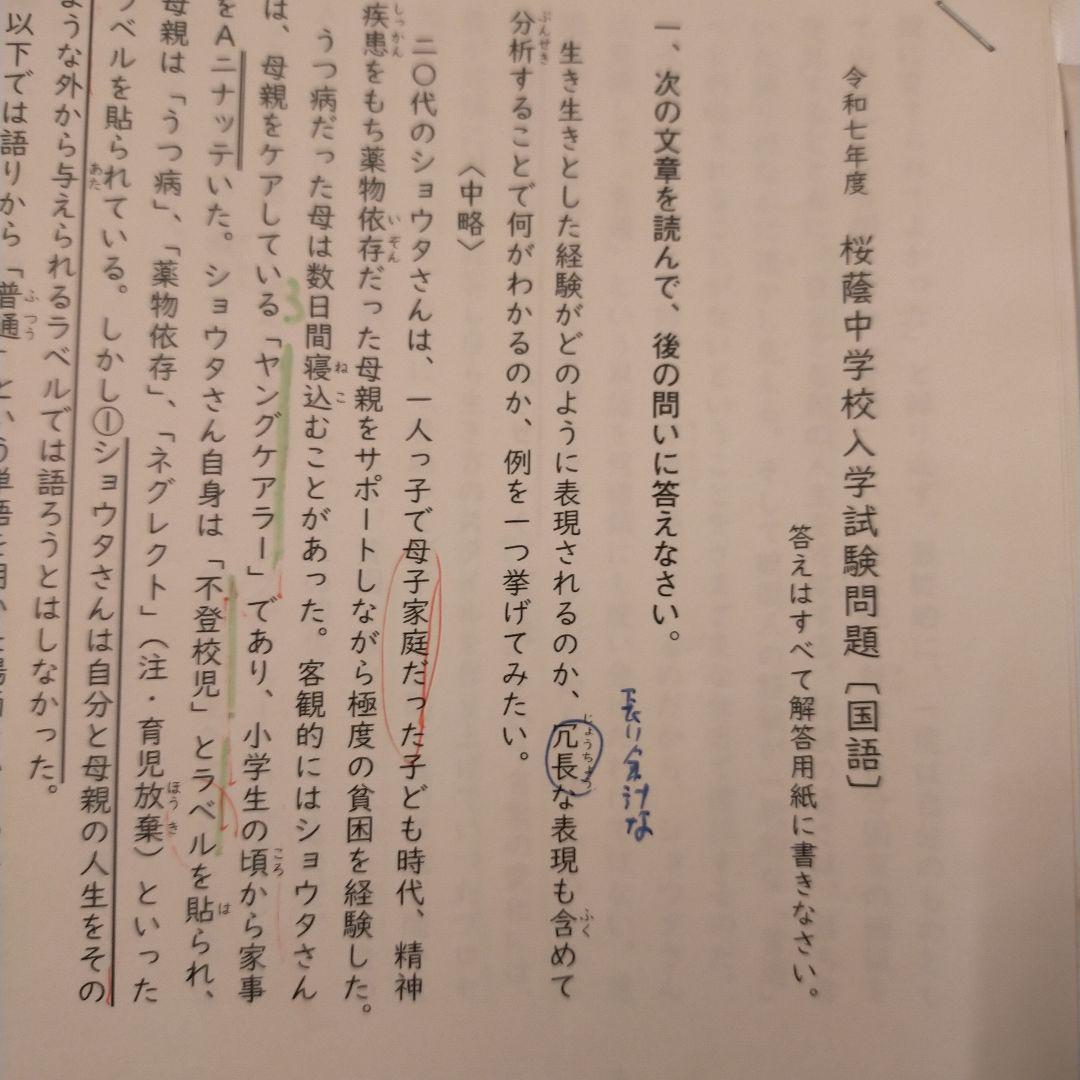 令和七年度　桜蔭中学校入学試験問題［国語］
答えはすべて解答用紙に書きなさい。
一、次の文章を読んで、後の問いに答えなさい。
長い余計な
生き生きとした経験がどのように表現されるのか、冗長な表現も含めて
じょうちょう
ふく
分析することで何がわかるのか、例を一つ挙げてみたい。
ぶんせき
〈中略〉
二〇代のショウタさんは、一人っ子で母子家庭だった子ども時代、精神
疾患をもち薬物依存だった母親をサポートしながら極度の貧困を経験した。
しっかん
いぞん
うつ病だった母は数日間寝込むことがあった。客観的にはショウタさん
ねこ
3
は、母親をケアしている「ヤングケアラー」であり、小学生の頃から家事
ころ
をAニナッテいた。ショウタさん自身は「不登校児」とラベルを貼られ、
は
母親は「うつ病」、「薬物依存」、「ネグレクト」（注・育児放棄）といった
ほうき
ラベルを貼られている。しかし①ショウタさんは自分と母親の人生をその
ような外から与えられるラベルでは語ろうとはしなかった。
あた
以下では語りから「普通」という単語を
ふつう